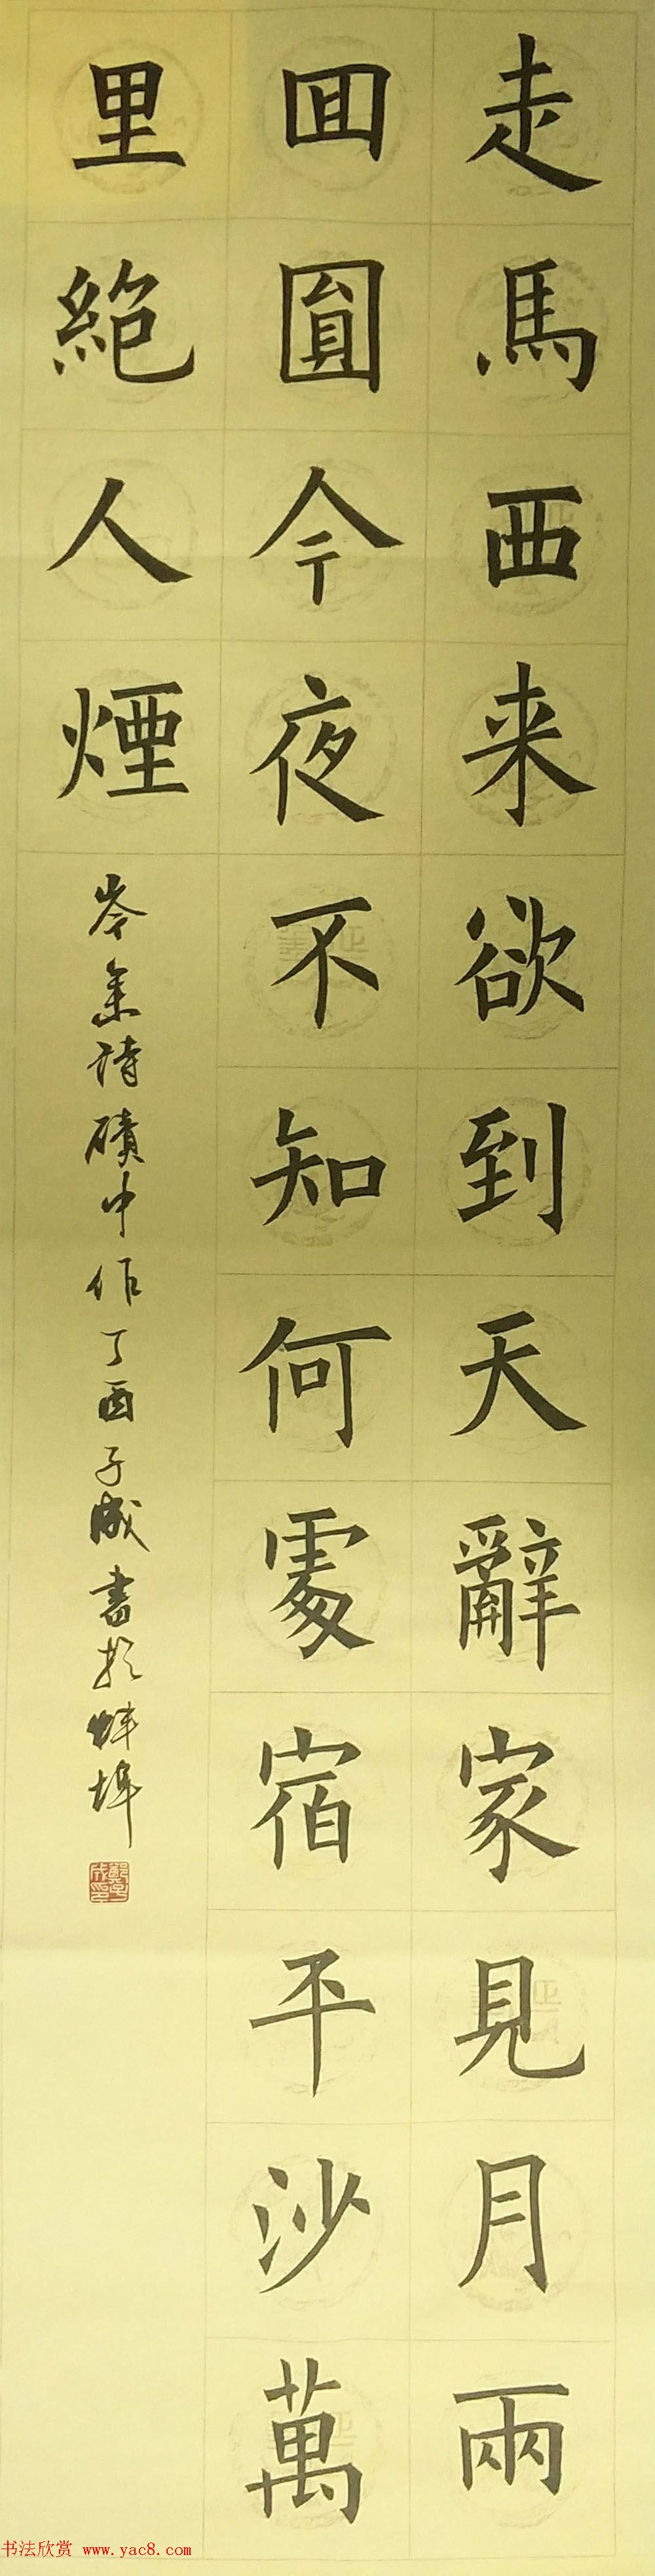 走馬西来欲到天辭家見月兩
囬圓今夜不知何處宿平沙萬
里絶人煙
岑參詩磧中作丁酉子成書於蚌埠
书法欣赏 www.yac8.com